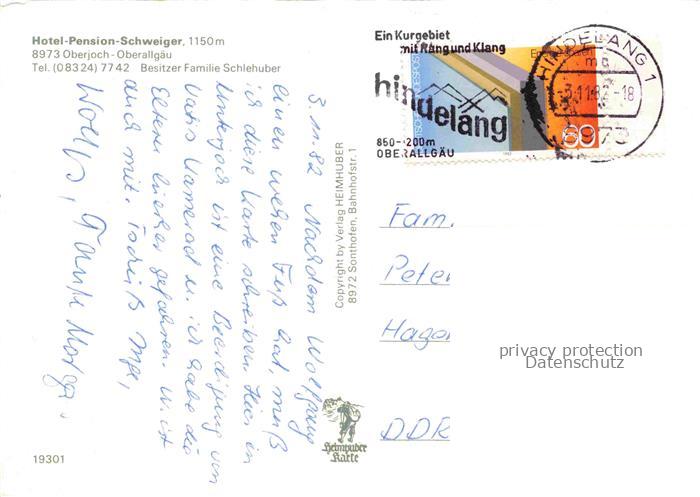 Hotel-Pension-Schweiger, 1150m
8973 Oberjoch - Oberallgäu
Tel. (08324) 7742 Besitzer Familie Schlehuber
Ein Kurgebiet
mit Rang und Klang
hindelang
850-1200m
OBERALLGÄU
HINDELANG 1
-3.11.82-18
8973
60
3.11.82 Nachdem Wolfgang
einen wehen Fuß hat, muß
ich diese Karte schreiben. Hier in
Unterjoch ist eine Beerdigung von
Vatis Kamerad u. ich habe die
Eltern hierher gefahren. U. ist
auch mit. Tschüß Inge,
Wolfg., Tante Marga.
Copyright by Verlag HEIMHUBER
8972 Sonthofen, Bahnhofstr. 1
Fam.
Peter
Hagen
DDR
privacy protection
Datenschutz
Heimhuber
Karte
19301